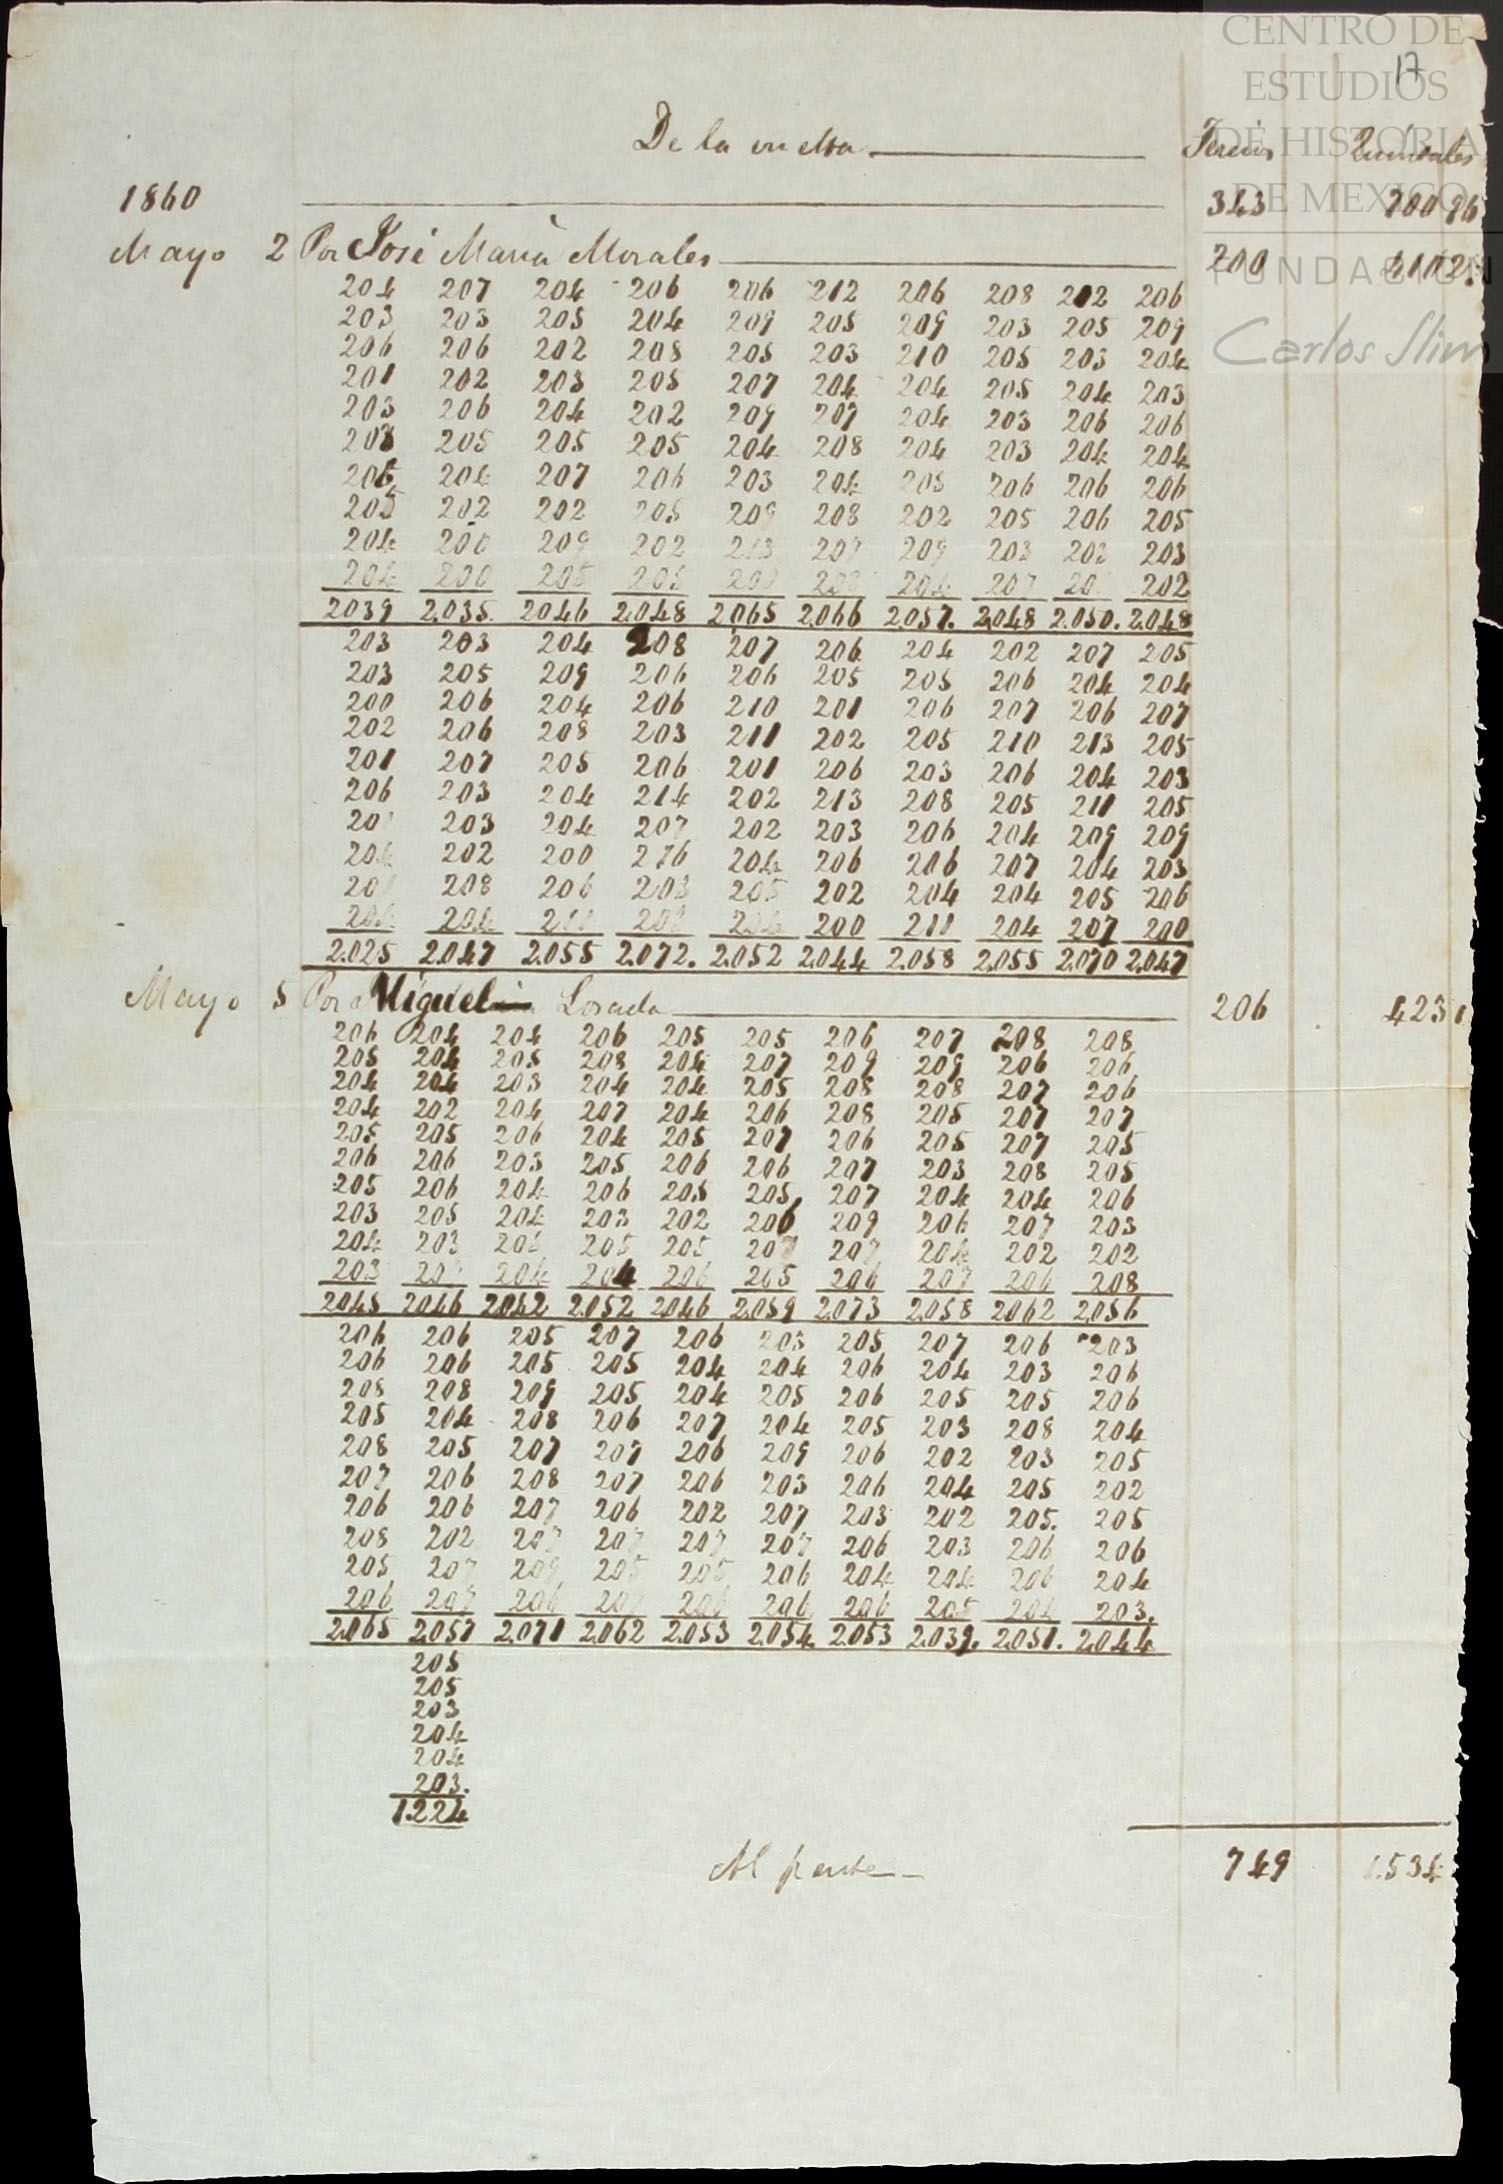 CENTRO DE
ESTUDIOS
DE HISTORIA
DE MEXICO
FUNDACION
Carlos Slim
17
De la vuelta Tercios Quintales
1860 343
Mayo 2 Por José Maria Morales 200
204 207 204 206 206 212 206 208 202 206
203 203 205 204 209 205 209 203 205 209
206 206 202 208 205 203 210 205 203 204
201 202 203 205 207 204 204 205 204 203
203 206 204 202 209 207 204 203 206 206
203 205 205 205 204 208 204 203 204 204
206 204 207 206 203 204 205 206 206 206
205 202 202 205 209 208 202 205 206 205
204 200 209 202 213 207 209 203 202 203
204 200 205 205 204 207 202
2039 2.035. 2046 2.048 2.065 2.066 2.057. 2.048 2.050. 2.048
203 203 204 208 207 206 204 202 207 205
203 205 209 206 206 205 205 206 204 204
200 206 204 206 210 201 206 207 206 207
202 206 208 203 211 202 205 210 213 205
201 207 205 206 201 206 203 206 204 203
206 203 204 214 202 213 208 205 211 205
203 204 207 202 203 206 204 209 209
204 202 200 216 204 206 206 207 204 203
208 206 203 205 202 204 204 205 206
204 204 200 211 204 207 200
2.025 2.047 2.055 2.072. 2.052 2.044 2.058 2.055 2.070 2.047
Mayo 5 Por Miguel Losada 206 423
206 204 204 206 205 205 206 207 208 208
205 204 205 208 204 207 209 209 206 206
204 204 203 204 204 205 208 208 207 206
204 202 204 207 204 206 208 205 207 207
205 205 206 204 205 207 206 205 207 205
206 206 203 205 206 206 207 203 208 205
205 206 204 206 205 205 207 204 204 206
203 205 204 203 202 206 209 206 207 203
204 203 205 205 205 207 207 204 202 202
203 204 204 206 205 206 207 206 208
2045 2046 2042 2.052 2046 2.059 2.073 2.058 2.062 2.056
206 206 205 207 206 203 205 207 206 203
206 206 205 205 204 204 206 204 203 206
208 208 209 205 204 205 206 205 205 206
205 204 208 206 207 204 205 203 208 204
208 205 207 207 206 209 206 202 203 205
207 206 208 207 206 203 206 204 205 202
206 206 207 206 202 207 203 202 205. 205
208 202 207 207 207 207 206 203 206 206
205 207 209 205 205 206 204 204 206 204
206 207 206 207 206 206 206 205 204 203.
2.065 2057 2.071 2.062 2.053 2.054. 2.053 2.039. 2.051. 2.044
205
205
203
204
204
203.
1.224
Al frente 749 1.534